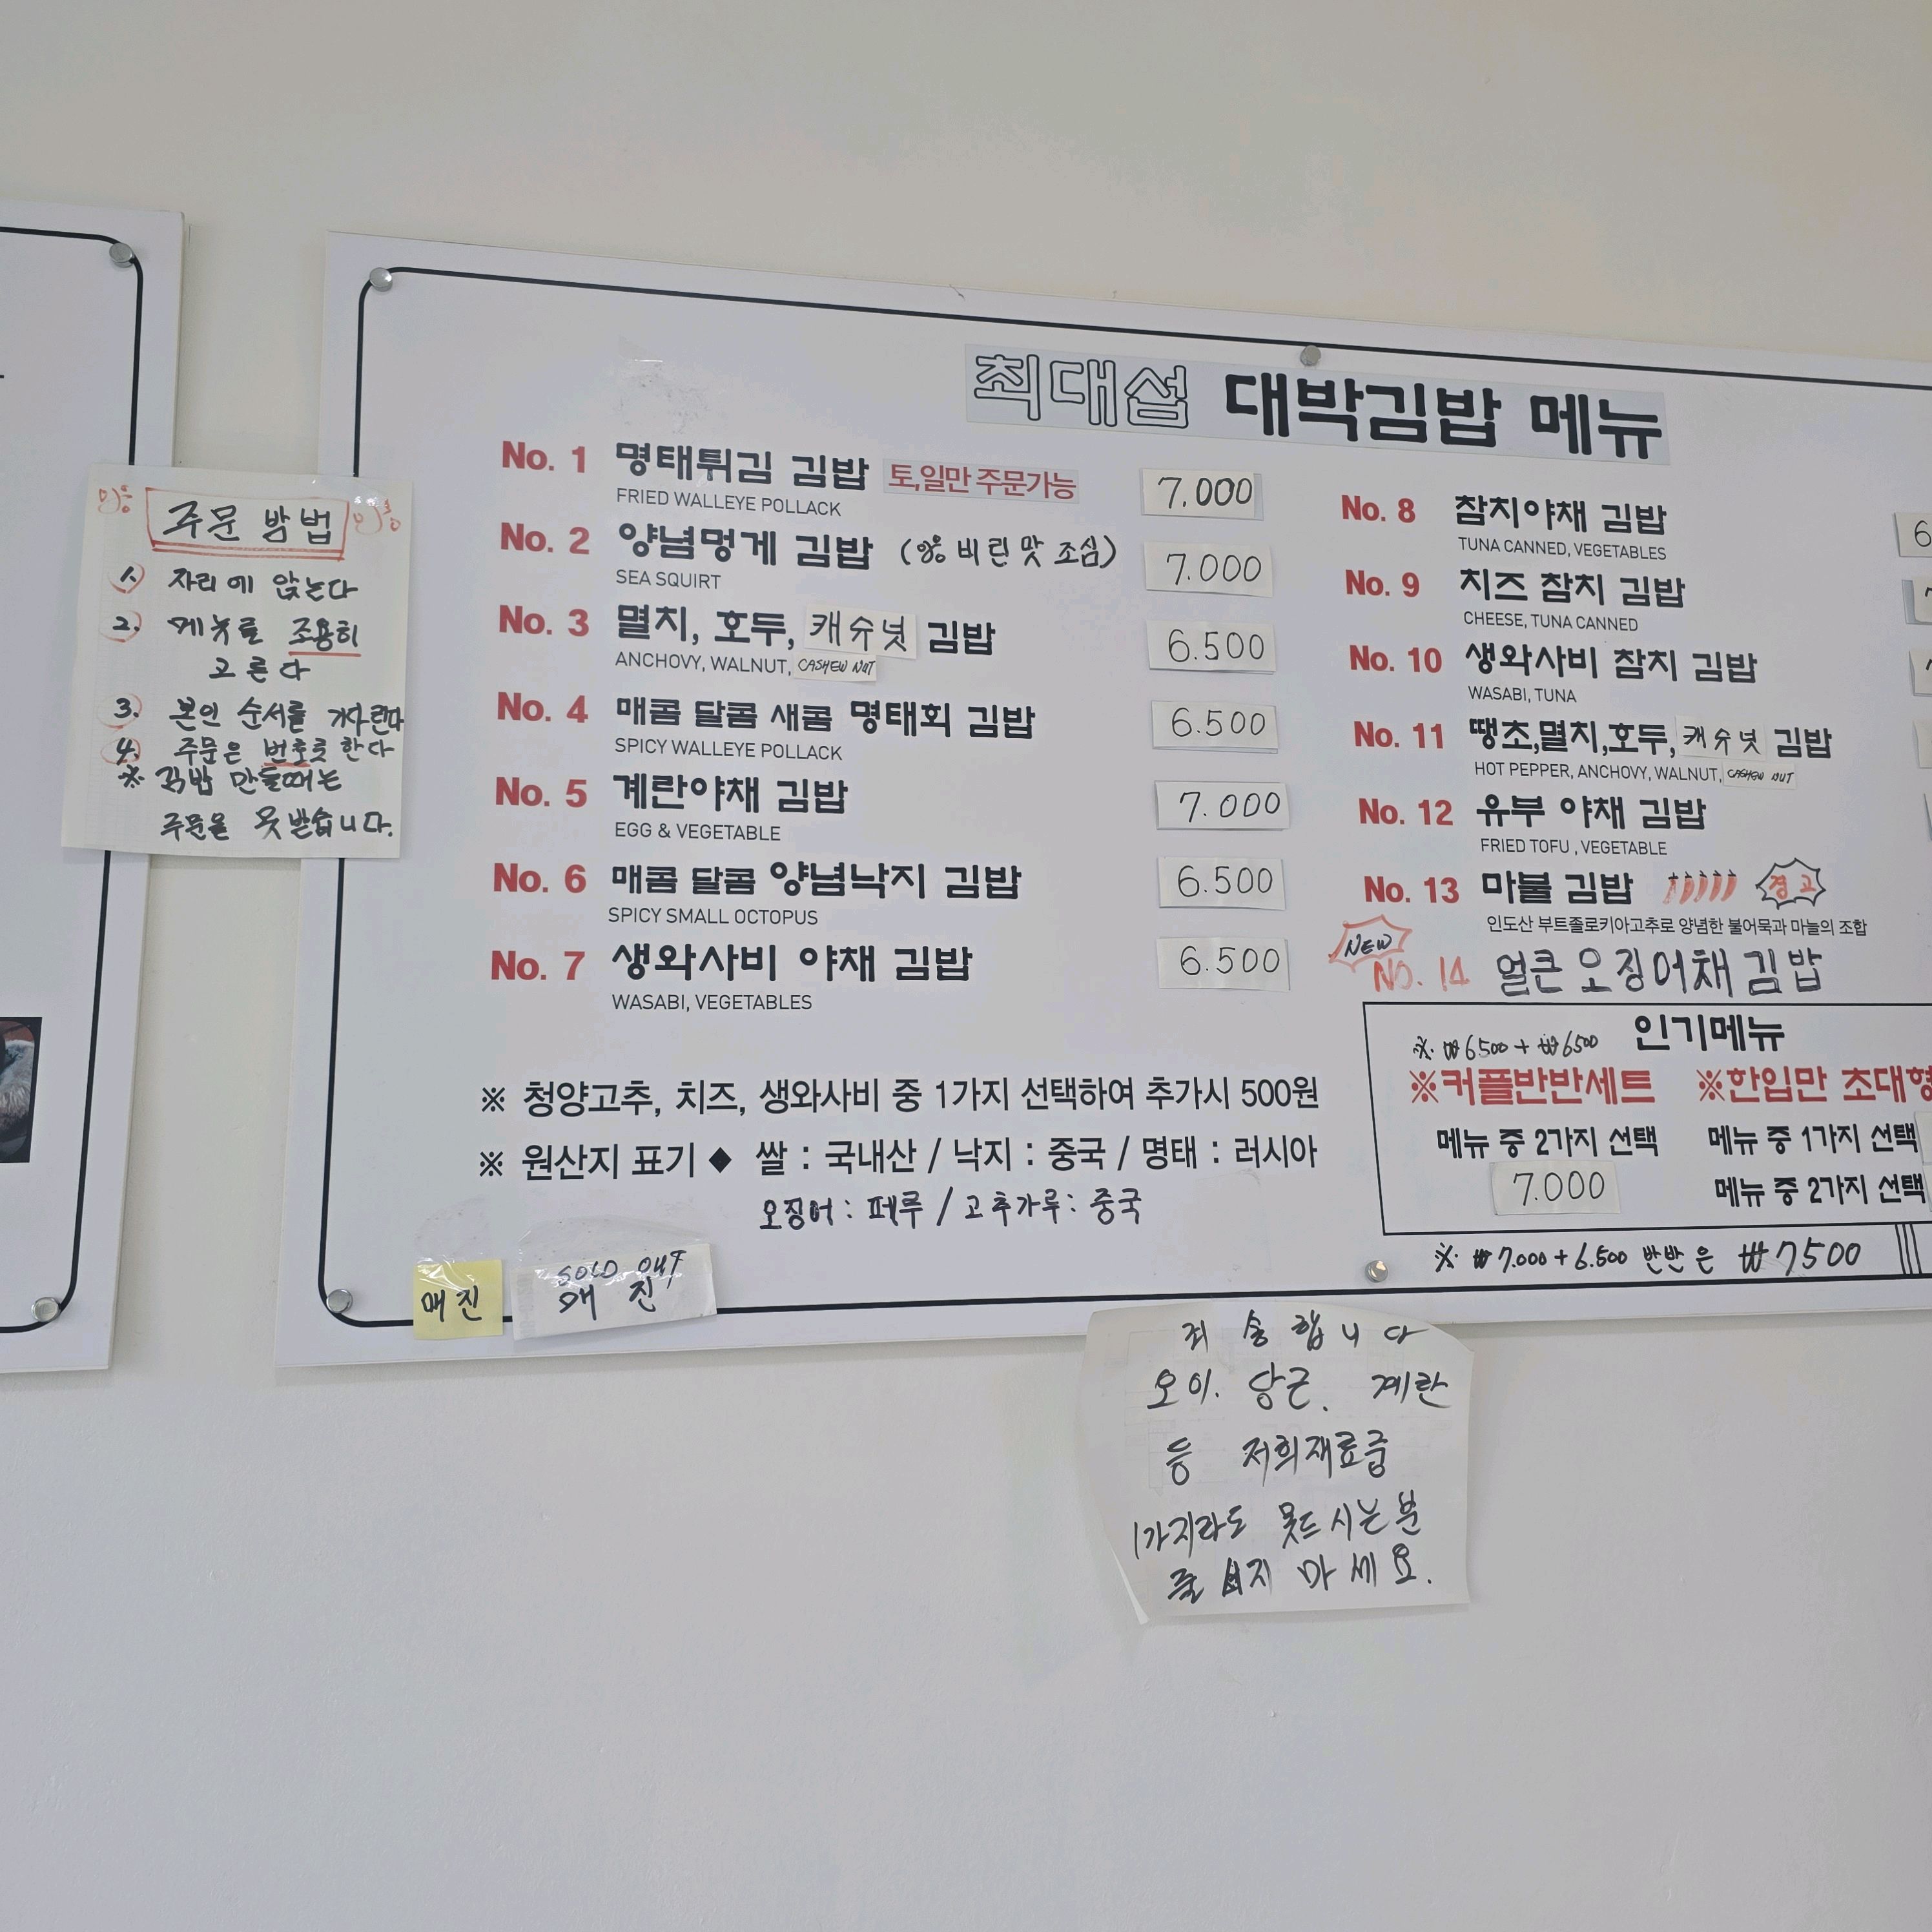 주문 방법
1. 자리에 앉는다
2. 메뉴를 조용히
고른다
3. 본인 순서를 기다린다
4. 주문은 번호로 한다
※ 김밥 만들때는
주문을 못받습니다.
최대섭 대박김밥 메뉴
No. 1 명태튀김 김밥 토,일만 주문가능 7.000
FRIED WALLEYE POLLACK
No. 2 양념멍게 김밥 (비린맛 조심) 7.000
SEA SQUIRT
No. 3 멸치, 호두, 캐슈넛 김밥 6.500
ANCHOVY, WALNUT, CASHEW NUT
No. 4 매콤 달콤 새콤 명태회 김밥 6.500
SPICY WALLEYE POLLACK
No. 5 계란야채 김밥 7.000
EGG & VEGETABLE
No. 6 매콤 달콤 양념낙지 김밥 6.500
SPICY SMALL OCTOPUS
No. 7 생와사비 야채 김밥 6.500
WASABI, VEGETABLES
No. 8 참치야채 김밥 6
TUNA CANNED, VEGETABLES
No. 9 치즈 참치 김밥
CHEESE, TUNA CANNED
No. 10 생와사비 참치 김밥
WASABI, TUNA
No. 11 땡초,멸치,호두, 캐슈넛 김밥
HOT PEPPER, ANCHOVY, WALNUT, CASHEW NUT
No. 12 유부 야채 김밥
FRIED TOFU , VEGETABLE
No. 13 마불 김밥 경고
인도산 부트졸로키아고추로 양념한 불어묵과 마늘의 조합
NEW
NO. 14 얼큰 오징어채 김밥
※ 청양고추, 치즈, 생와사비 중 1가지 선택하여 추가시 500원
※ 원산지 표기 ◆ 쌀 : 국내산 / 낙지 : 중국 / 명태 : 러시아
오징어 : 페루 / 고추가루 : 중국
인기메뉴
※ ₩6500 + ₩6500
※커플반반세트 ※한입만 초대형
메뉴 중 2가지 선택 메뉴 중 1가지 선택
7.000 메뉴 중 2가지 선택
※ ₩7.000 + 6.500 반반은 ₩7500
매진
SOLD OUT
매 진
죄송합니다
오이. 당근. 계란
등 저희재료중
1가지라도 못드시는분
줄 서지 마세요.